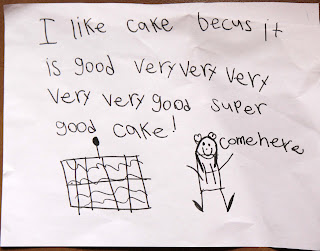 I like cake becus it
is good very very very
very very good super
good cake!
comehexe